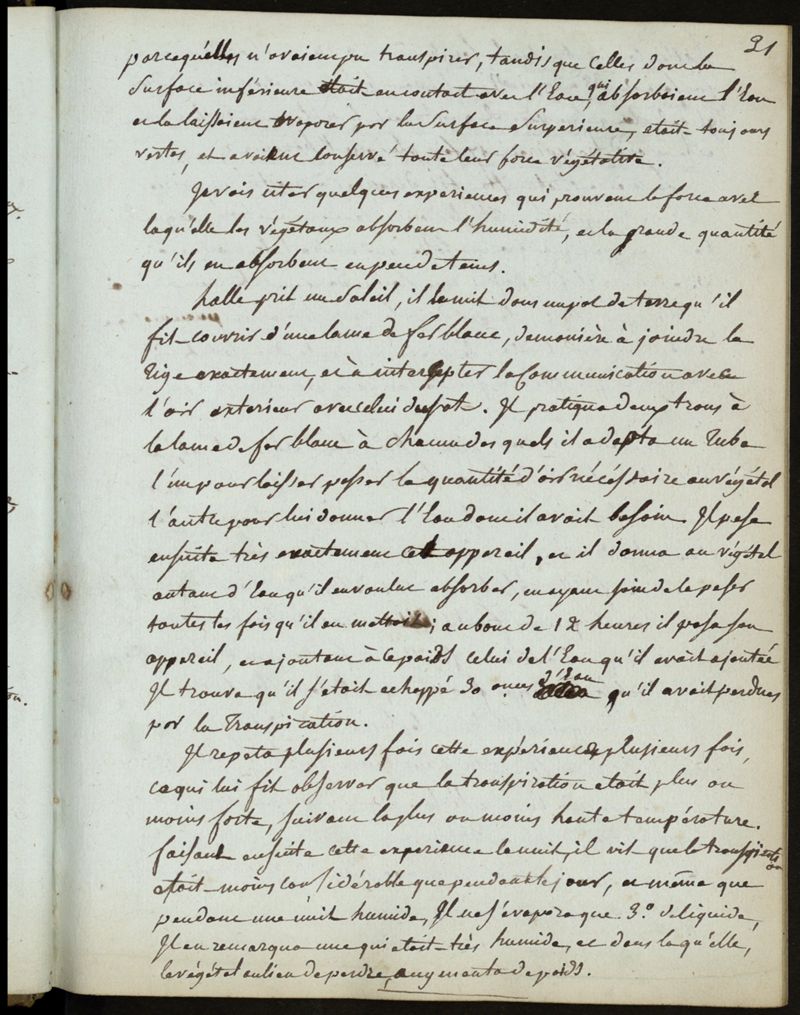 21
parcequ'elles n'avaient pu transpirer, tandis que celles dont la
surface inférieure était en contact avec l'Eau, qui absorboient l'Eau
et la laissoient evaporer par la surface superieure, etait toujours
vertes, et avaient conservé toute leur force végétative.
Je vais citer quelques experiences qui prouvent la force avec
laqu'elle les végétaux absorbent l'humidité, et la grande quantité
qu'ils en absorbent en peu de tems.
halle prit un Soleil, il le mit dans un pot de terre qu'il
fit couvrir d'une lame de fer blanc, de manière à joindre la
Tige exactement, et à intercepter la Communication avec
l'air exterieur avec celui du pot. Il pratiqua deux trous à
la lame de fer blanc à chacun des quels il adapta un Tube
l'un pour laisser passer la quantité d'air nécéssaire au végétal
l'autre pour lui donner l'Eau dont il avait besoin. Il pesa
ensuite très exactement cet appareil, et il donna au végétal
autant d'Eau qu'il en voulut absorber, en ayant soin de la peser
toutes les fois qu'il en mettoit; au bout de 12 heures il pesa son
appareil, et ajoutant à ce poids celui de l'Eau qu'il avait ajoutée
Il trouva qu'il s'était echappé 30 onces d'Eau qu'il avait perdues
par la Transpiration.
Il repeta plusieurs fois cette expérience plusieurs fois,
ce qui lui fit observer que la transpiration etait plus ou
moins forte, suivant la plus ou moins haute température.
faisant ensuite cette experience la nuit, il vit que la transpiration
etait moins considérable que pendant le jour, et même que
pendant une nuit humide, Il ne s'évapora que 3.° de liquide,
Il en remarqua une qui etait très humide, et dans laqu'elle,
le végétal au lieu de perdre, augmenta de poids.